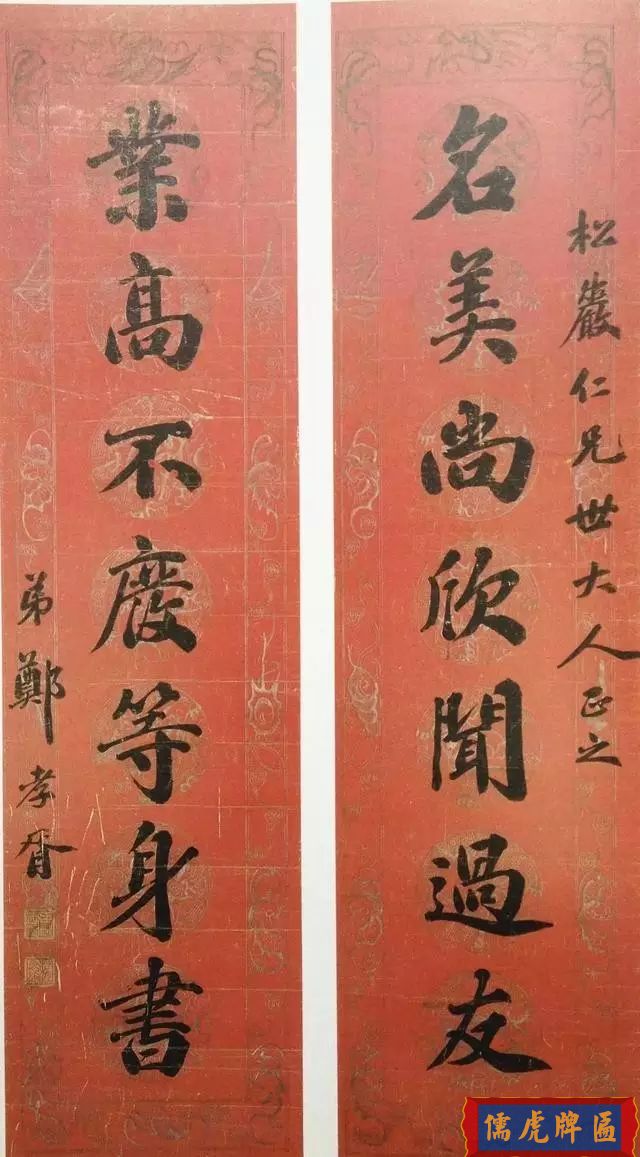 松巖仁兄世大人正之
名美尚欣聞過友
業高不廢等身書
弟鄭孝胥
儒虎牌匾